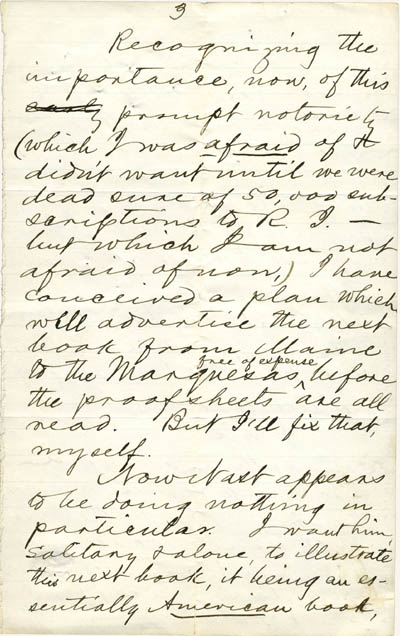 3
Recognizing the
importance, now, of this
early prompt notoriety
(which I was afraid of &
didn't want until we were
dead sure of 50,000 sub-
scriptions to R. I. —
but which I am not
afraid of now,) I have
conceived a plan which
will advertise the next
book from Maine
to the Marquesas, free of expense before
the proof sheets are all
read. But I'll fix that,
myself.
Now Nast appears
to be doing nothing in
particular. I want him,
solitary & alone, to illustrate
this next book, it being an es-
sentially American book,